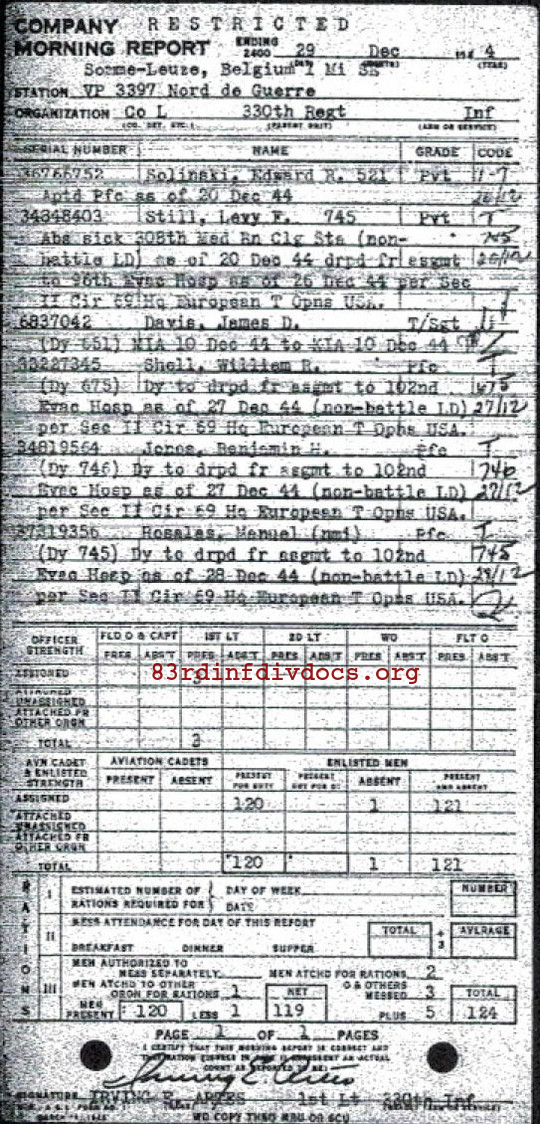 RESTRICTED
COMPANY
MORNING REPORT ENDING 2400 29 Dec 194 4
Somme-Leuze, Belgium 1 Mi SE
STATION VP 3397 Nord de Guerre
ORGANIZATION Co L 330th Regt Inf
(CO. DET. ETC.) (PARENT UNIT) (ARM OR SERVICE)
SERIAL NUMBER NAME GRADE CODE
36766752 Solinski, Edward R. 521 Pvt
Aptd Pfc as of 20 Dec 44
34348403 Still, Levy F. 745 Pvt T
Abs sick 308th Med Bn Clg Sta (non- 745
battle LD) as of 20 Dec 44 drpd fr asgmt
to 96th Evac Hosp as of 26 Dec 44 per Sec
II Cir 69 Hq European T Opns USA.
6837042 Davis, James D. T/Sgt
(Dy 651) MIA 10 Dec 44 to KIA 10 Dec 44
33227345 Shell, William R. Pfc T
(Dy 675) Dy to drpd fr asgmt to 102nd 675
Evac Hosp as of 27 Dec 44 (non-battle LD) 27/12
per Sec II Cir 69 Hq European T Opns USA.
34819564 Jones, Benjamin H. Pfc T
(Dy 746) Dy to drpd fr asgmt to 102nd 746
Evac Hosp as of 27 Dec 44 (non-battle LD) 27/12
per Sec II Cir 69 Hq European T Opns USA.
37319356 Rosales, Manuel (nmi) Pfc T
(Dy 745) Dy to drpd fr asgmt to 102nd 745
Evac Hosp as of 28 Dec 44 (non-battle LD) 28/12
per Sec II Cir 69 Hq European T Opns USA.
OFFICER STRENGTH FLD O & CAPT 1ST LT 2D LT WO FLT O
PRES ABS'T PRES ABS'T PRES ABS'T PRES ABS'T PRES ABS'T
ASSIGNED 3
83rdinfdivdocs.org
ATTACHED UNASSIGNED
ATTACHED FR OTHER ORGN
TOTAL 3
AVN CADET & ENLISTED STRENGTH AVIATION CADETS ENLISTED MEN
PRESENT ABSENT PRESENT FOR DUTY PRESENT NOT FOR D ABSENT PRESENT AND ABSENT
ASSIGNED 120 1 121
ATTACHED UNASSIGNED
ATTACHED FR OTHER ORGN
TOTAL 120 1 121
RATIONS
I ESTIMATED NUMBER OF RATIONS REQUIRED FOR DAY OF WEEK DATE NUMBER
II MESS ATTENDANCE FOR DAY OF THIS REPORT TOTAL ÷ 3 AVERAGE
BREAKFAST DINNER SUPPER
III MEN AUTHORIZED TO MESS SEPARATELY MEN ATCHD FOR RATIONS 2
MEN ATCHD TO OTHER ORGN FOR RATIONS 1 NET O & OTHERS MESSED 3 TOTAL
MEN PRESENT 120 LESS 1 119 PLUS 5 124
PAGE 1 OF 1 PAGES
I CERTIFY THAT THIS MORNING REPORT IS CORRECT AND
SIGNATURE IRVING E. ARTES 1st Lt 330th Inf